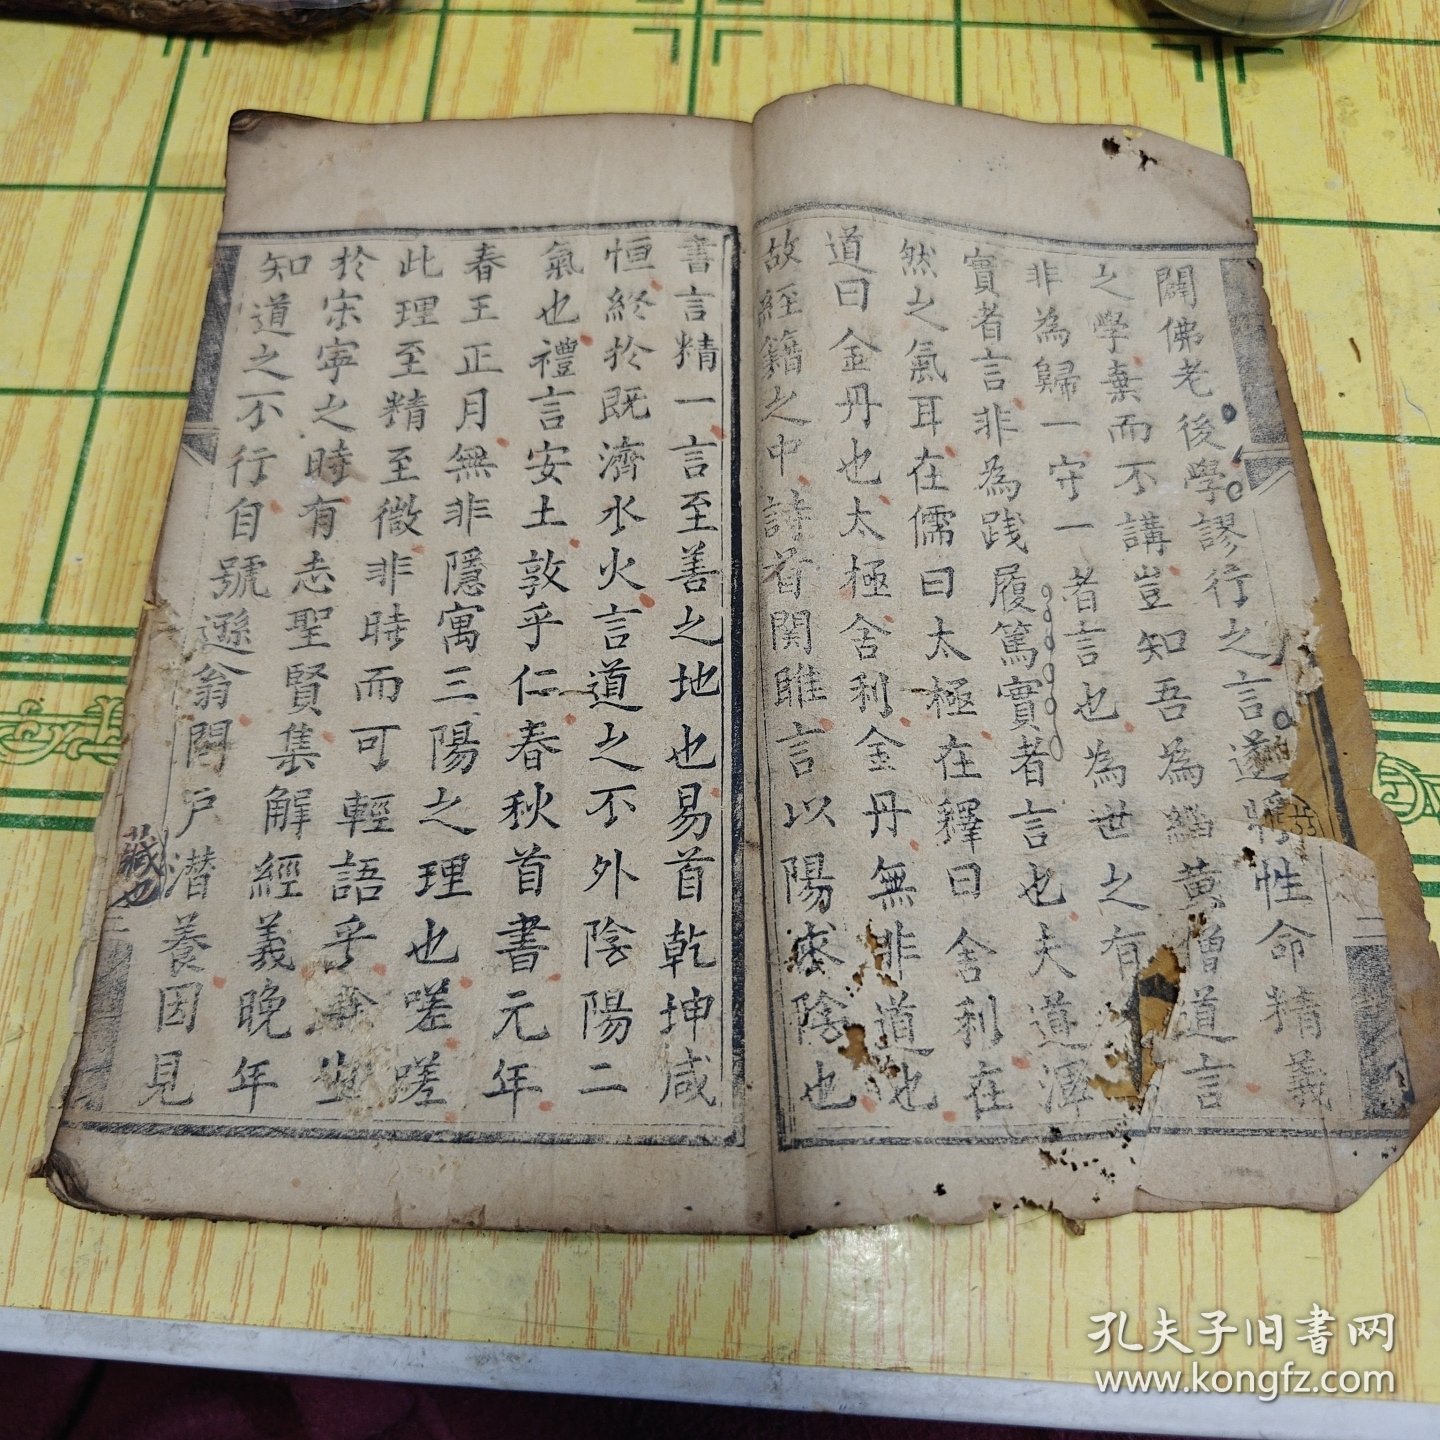 闢佛老後學謬行之言遂將性命精義
之學棄而不講豈知吾為緇黃僧道言
非為歸一守一者言也為世之有
實者言非為踐履篤實者言也夫道渾
然之氣耳在儒曰太極在釋曰舍利在
道曰金丹也太極舍利金丹無非道也
故經籍之中詩首關雎言以陽求陰也
書言精一言至善之地也易首乾坤咸
恒終於既濟水火言道之不外陰陽二
氣也禮言安土敦乎仁春秋首書元年
春王正月無非隱寓三陽之理也嗟嗟
此理至精至微非時而可輕語乎
於宋寧之時有志聖賢集解經義晚年
知道之不行自號遯翁閉戶潛養因見
藏也
孔夫子旧书网
www.kongfz.com